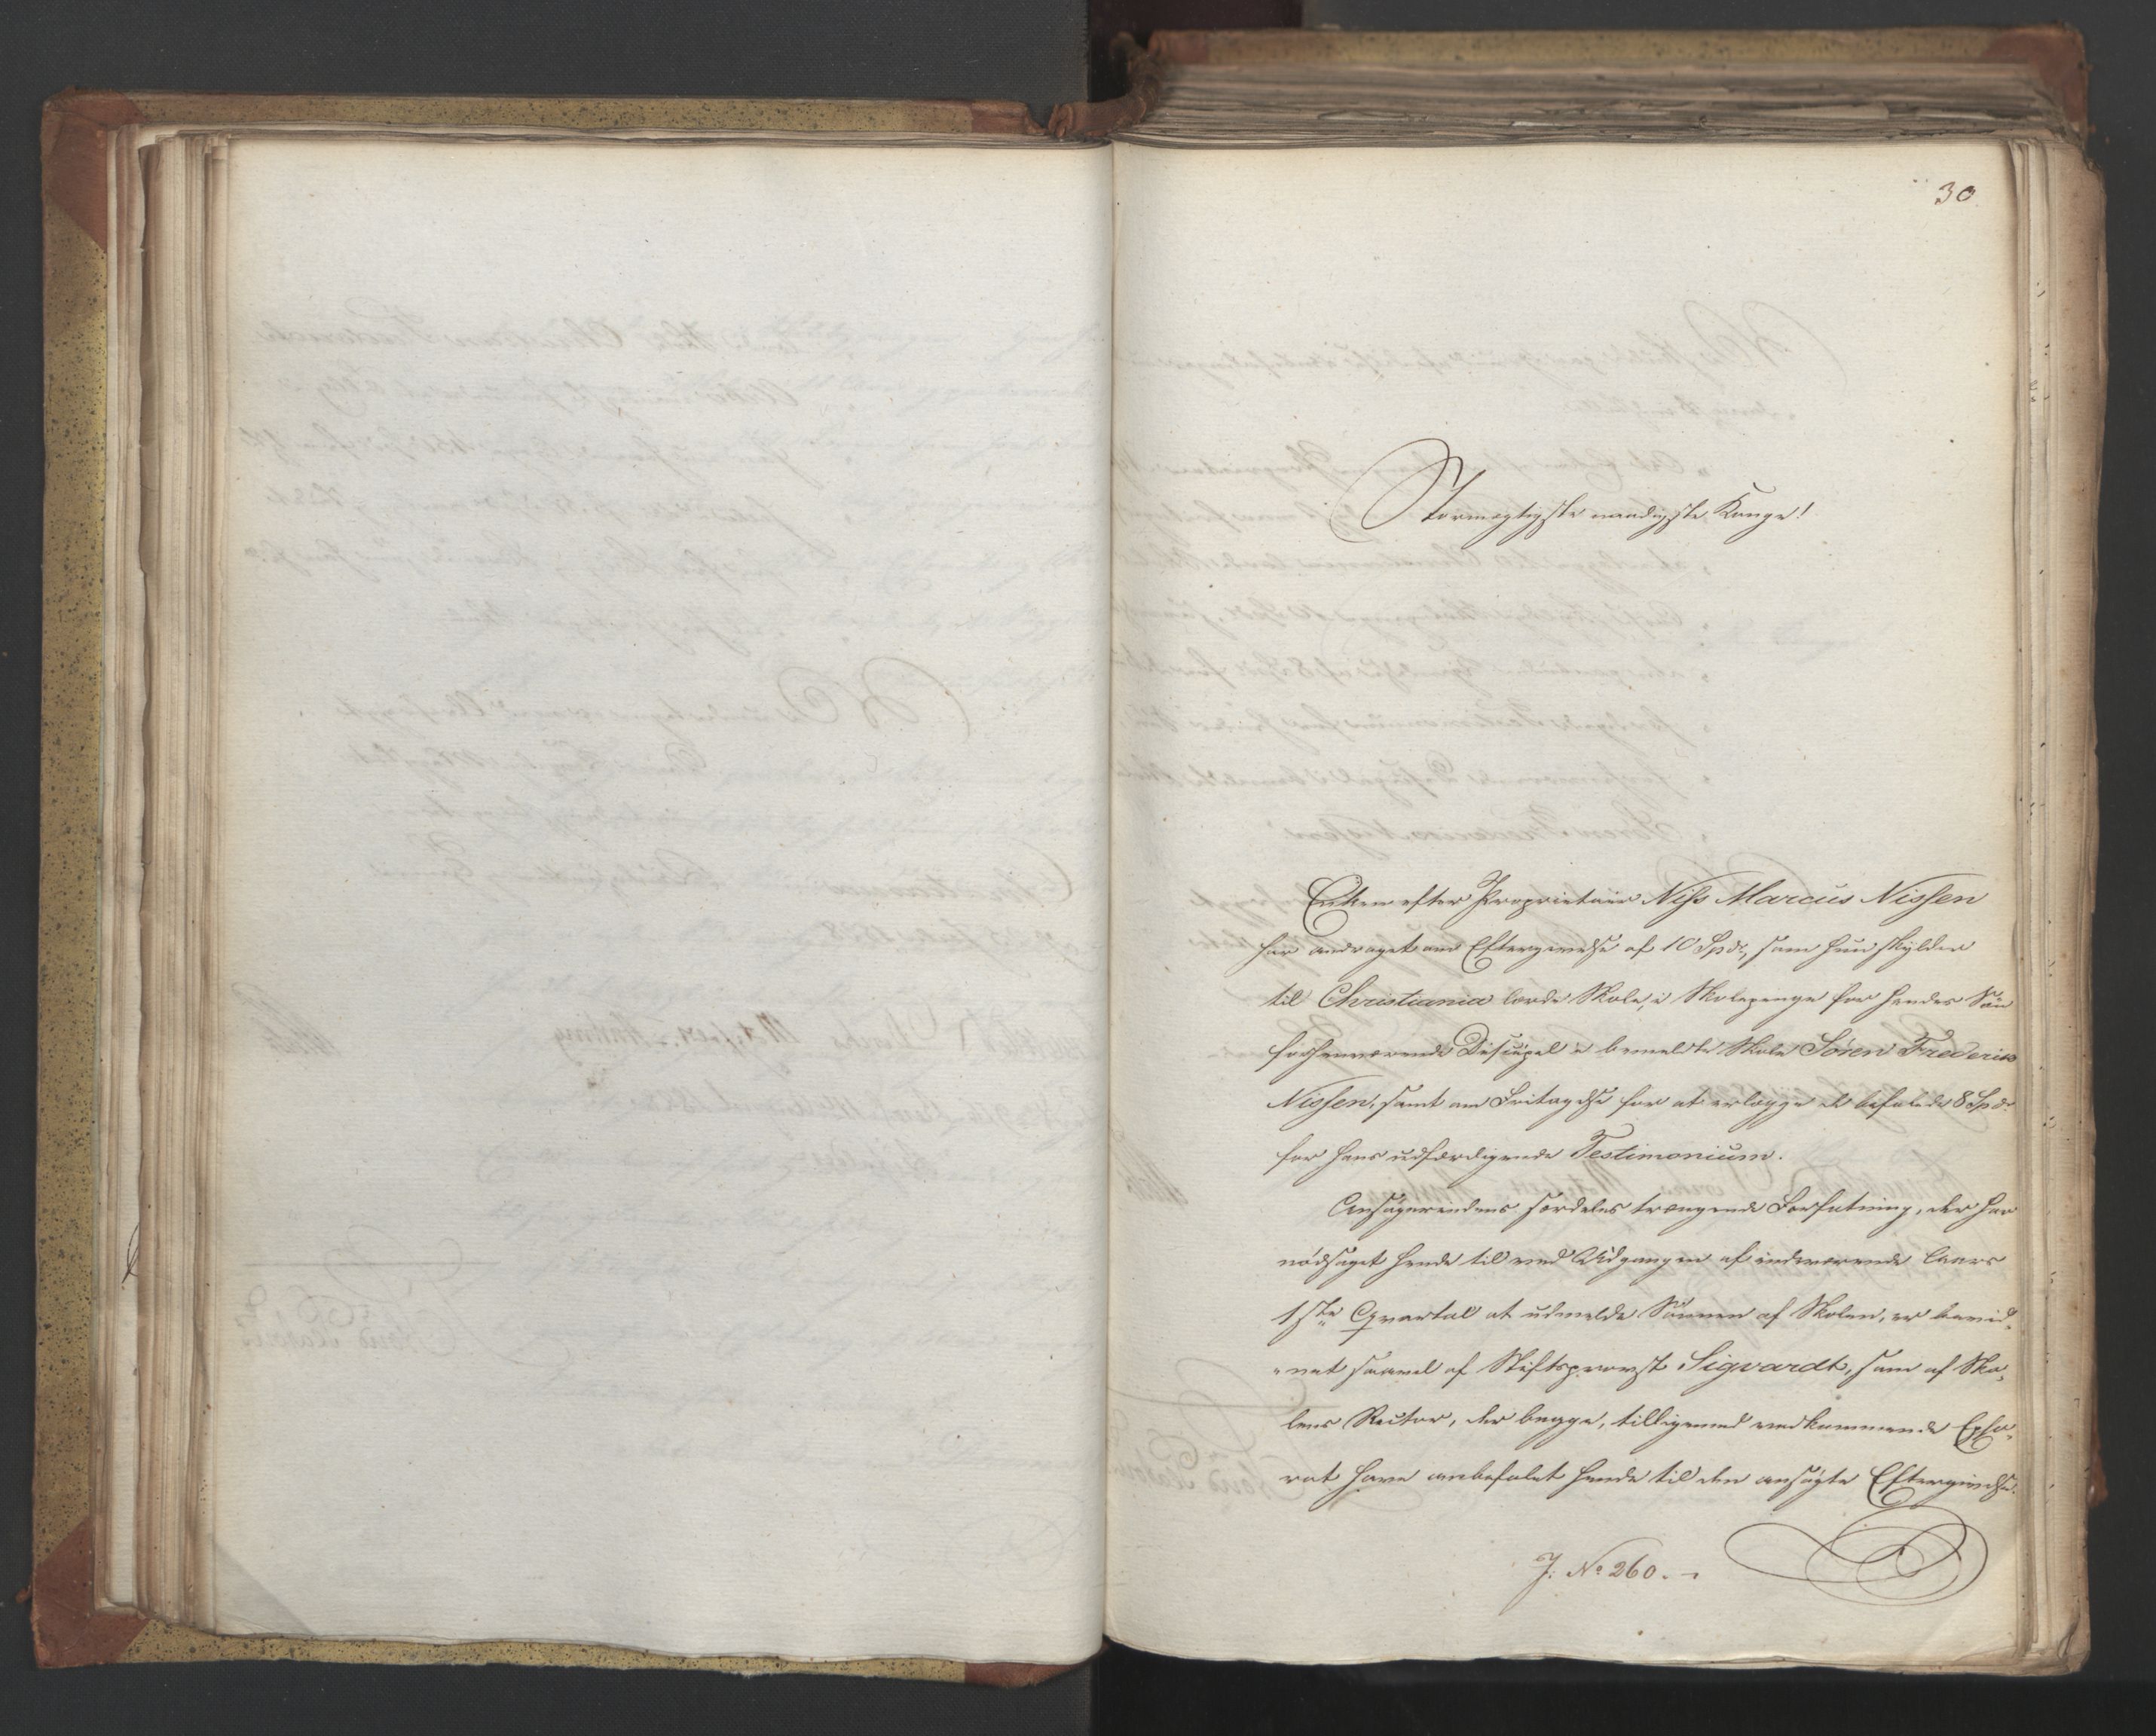 30
Stormægtigste naadigste Konge!
Enken efter Proprietair Niss Marcus Nissen
har andraget om Eftergivelse af 10 Spd., som hun skylder
til Christiania lærde Skole, i Skolepenge for hendes Søn
forhenværende Discipel i bemeldte Skole Sören Frederic
Nissen, samt om Fritagelse for at erlægge de befalede 8 Spd.
for hans udfærdigende Testimonium.
Ansøgerindens særdeles trængende Forfatning, der har
nödsaget hende til ved Udgangen af indeværende Aars
1ste Qvartal at udmelde Sönnen af Skolen, er bevid-
-net saavel af Stiftsprovst Sigvardt, som af Sko-
lens Rector, der begge, tilligemed vedkommende Epho-
rat have anbefalet hende til den ansögte Eftergivelse.
J. No 260. -